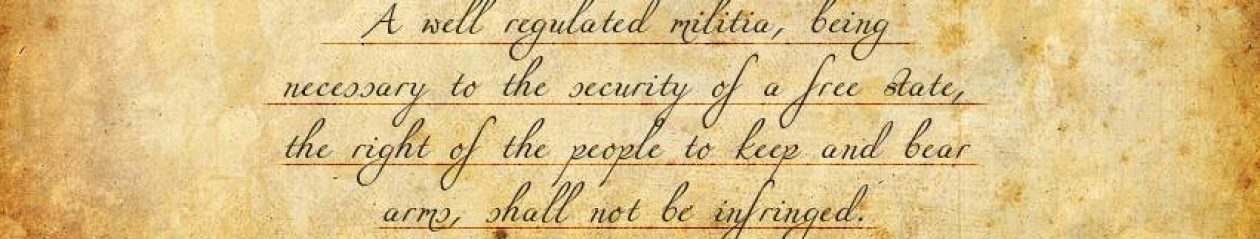 A well regulated militia, being
necessary to the security of a free state,
the right of the people to keep and bear
arms, shall not be infringed.